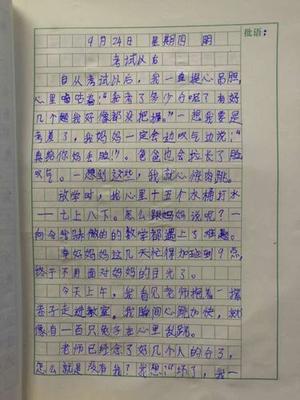 批语:
9月24日 星期四 晴
考试以后
自从考试以后，我一直提心吊胆，
心里嘀咕着:“我考了多少分呢？有好
几个题我好像都没把握。”一想我要是
考差了，我妈妈一定会边叹气边说:“
真给你妈丢脸！”。爸爸也会拉长了脸
叹气。一想到这些，我就心惊肉跳。
放学时，我心里十五个水桶打水
——七上八下。怎么跟妈妈说呢？一
向令我骄傲的的数学都遇上了难题。
幸好妈妈这几天忙得加班到9点，
终于不用面对妈妈的目光了。
今天上午，我看见老师抱着一摞
卷子走进教室。我瞬间心跳加快，就
像有一百只兔子在心里乱跳。
老师已经念了好几个人的名了，
怎么就是没有我？我想:“坏了，我一